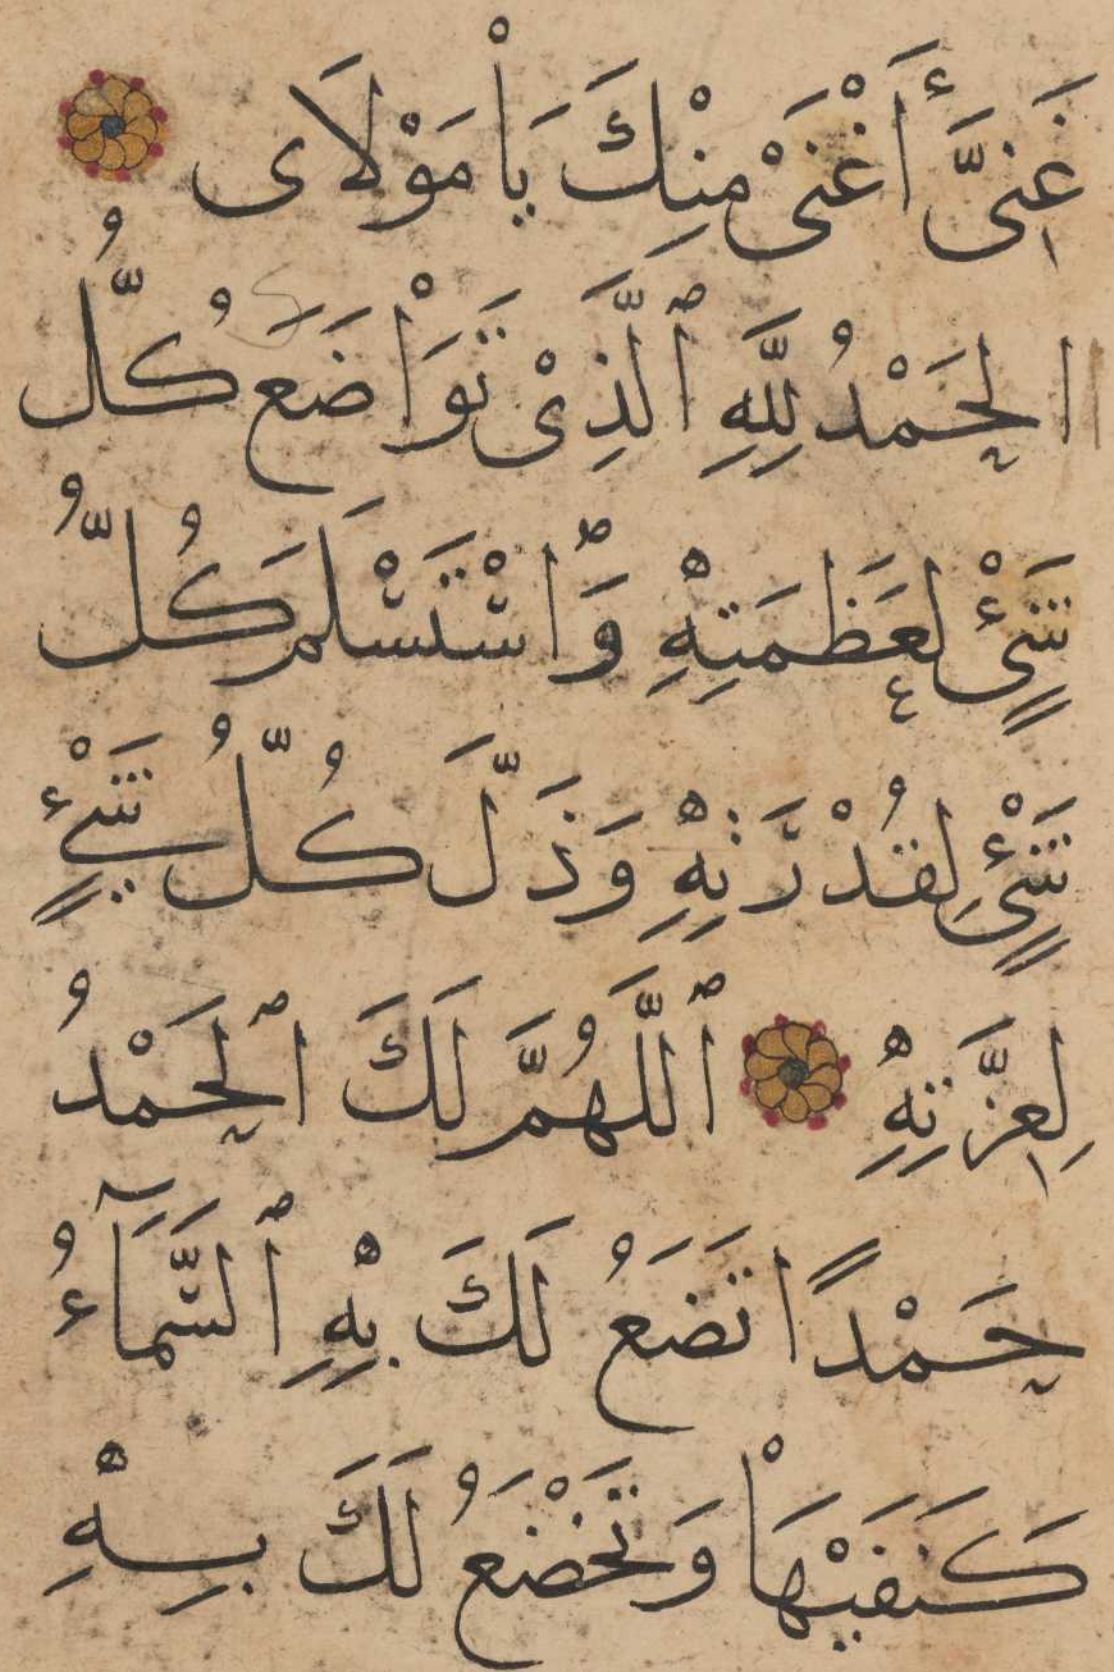 غَنِيَّ أَغْنَىْ مِنْكَ يَاْ مَوْلَاى
الحَمْدُ لِلَّهِ ٱلَّذِىْ تَوَاْضَعَ كُلُّ
شَىْءٍ لِعَظَمَتِهِ وَٱسْتَسْلَمَ كُلُّ
شَىْءٍ لِقُدْرَتِهِ وَذَلَّ كُلُّ شَيْءٍ
لِعِزَّتِهِ ٱللَّهُمَّ لَكَ ٱلحَمْدُ
حَمْدًا تَضَعُ لَكَ بِهِ ٱلسَّمَآءُ
كَنَفَيْهَاْ وَتَخْضَعُ لَكَ بِهِ